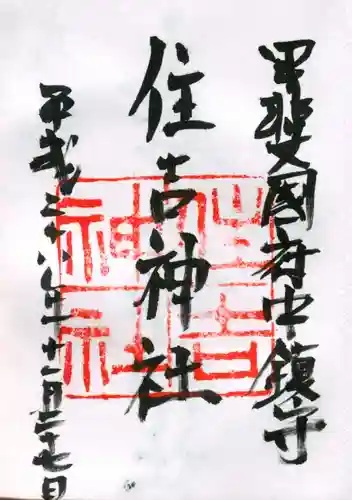 甲斐國府中鎮守
住吉神社
平成二十八年十二月二十七日
住吉
神社